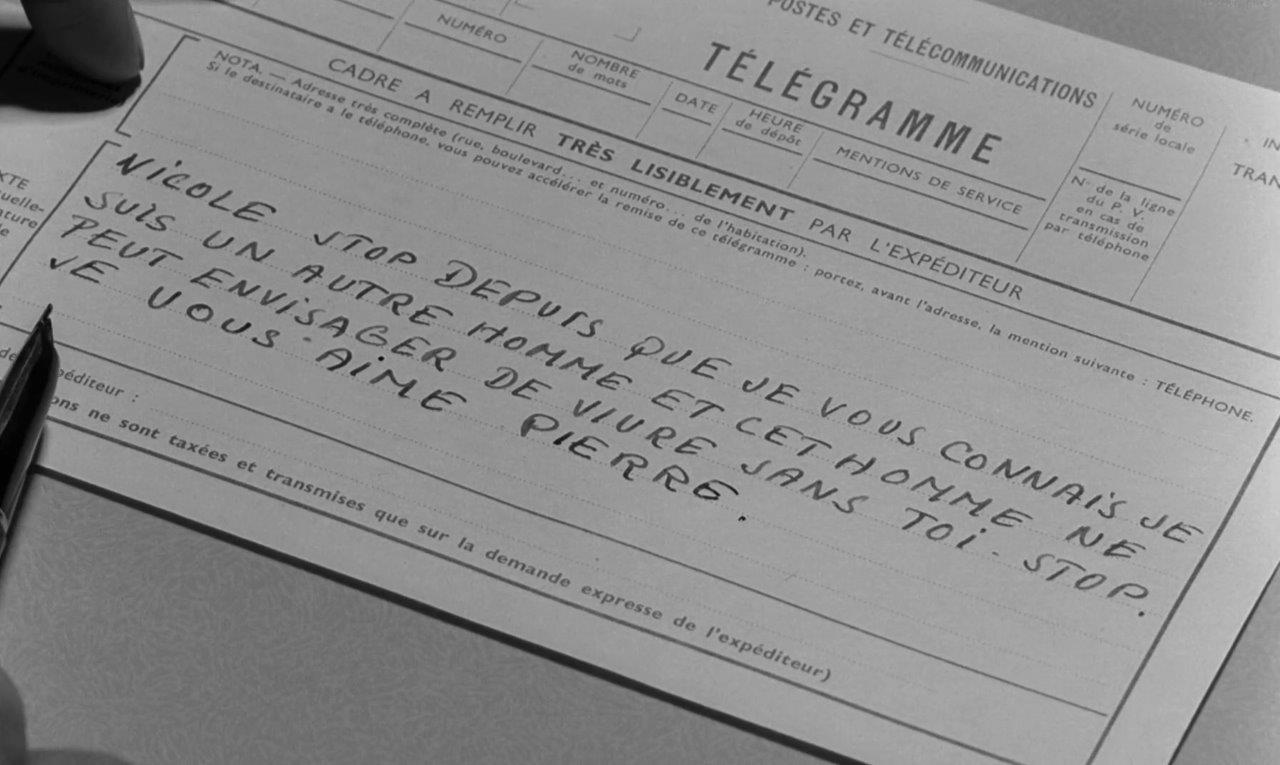 POSTES ET TÉLÉCOMMUNICATIONS
TÉLÉGRAMME
NUMÉRO
NOMBRE
de mots
DATE
HEURE
de dépôt
MENTIONS DE SERVICE
NUMÉRO
de
série locale
N° de la ligne
du P. V.
en cas de
transmission
par téléphone
IN
TRAN
CADRE A REMPLIR TRÈS LISIBLEMENT PAR L'EXPÉDITEUR
NOTA. — Adresse très complète (rue, boulevard... et numéro... de l'habitation).
Si le destinataire a le téléphone, vous pouvez accélérer la remise de ce télégramme : portez, avant l'adresse, la mention suivante : TÉLÉPHONE.
XTE
tuelle-
ature
NICOLE STOP DEPUIS QUE JE VOUS CONNAIS JE
SUIS UN AUTRE HOMME ET CET HOMME NE
PEUT ENVISAGER DE VIVRE SANS TOI. STOP.
JE VOUS AIME PIERRE.
péditeur :
ons ne sont taxées et transmises que sur la demande expresse de l'expéditeur)